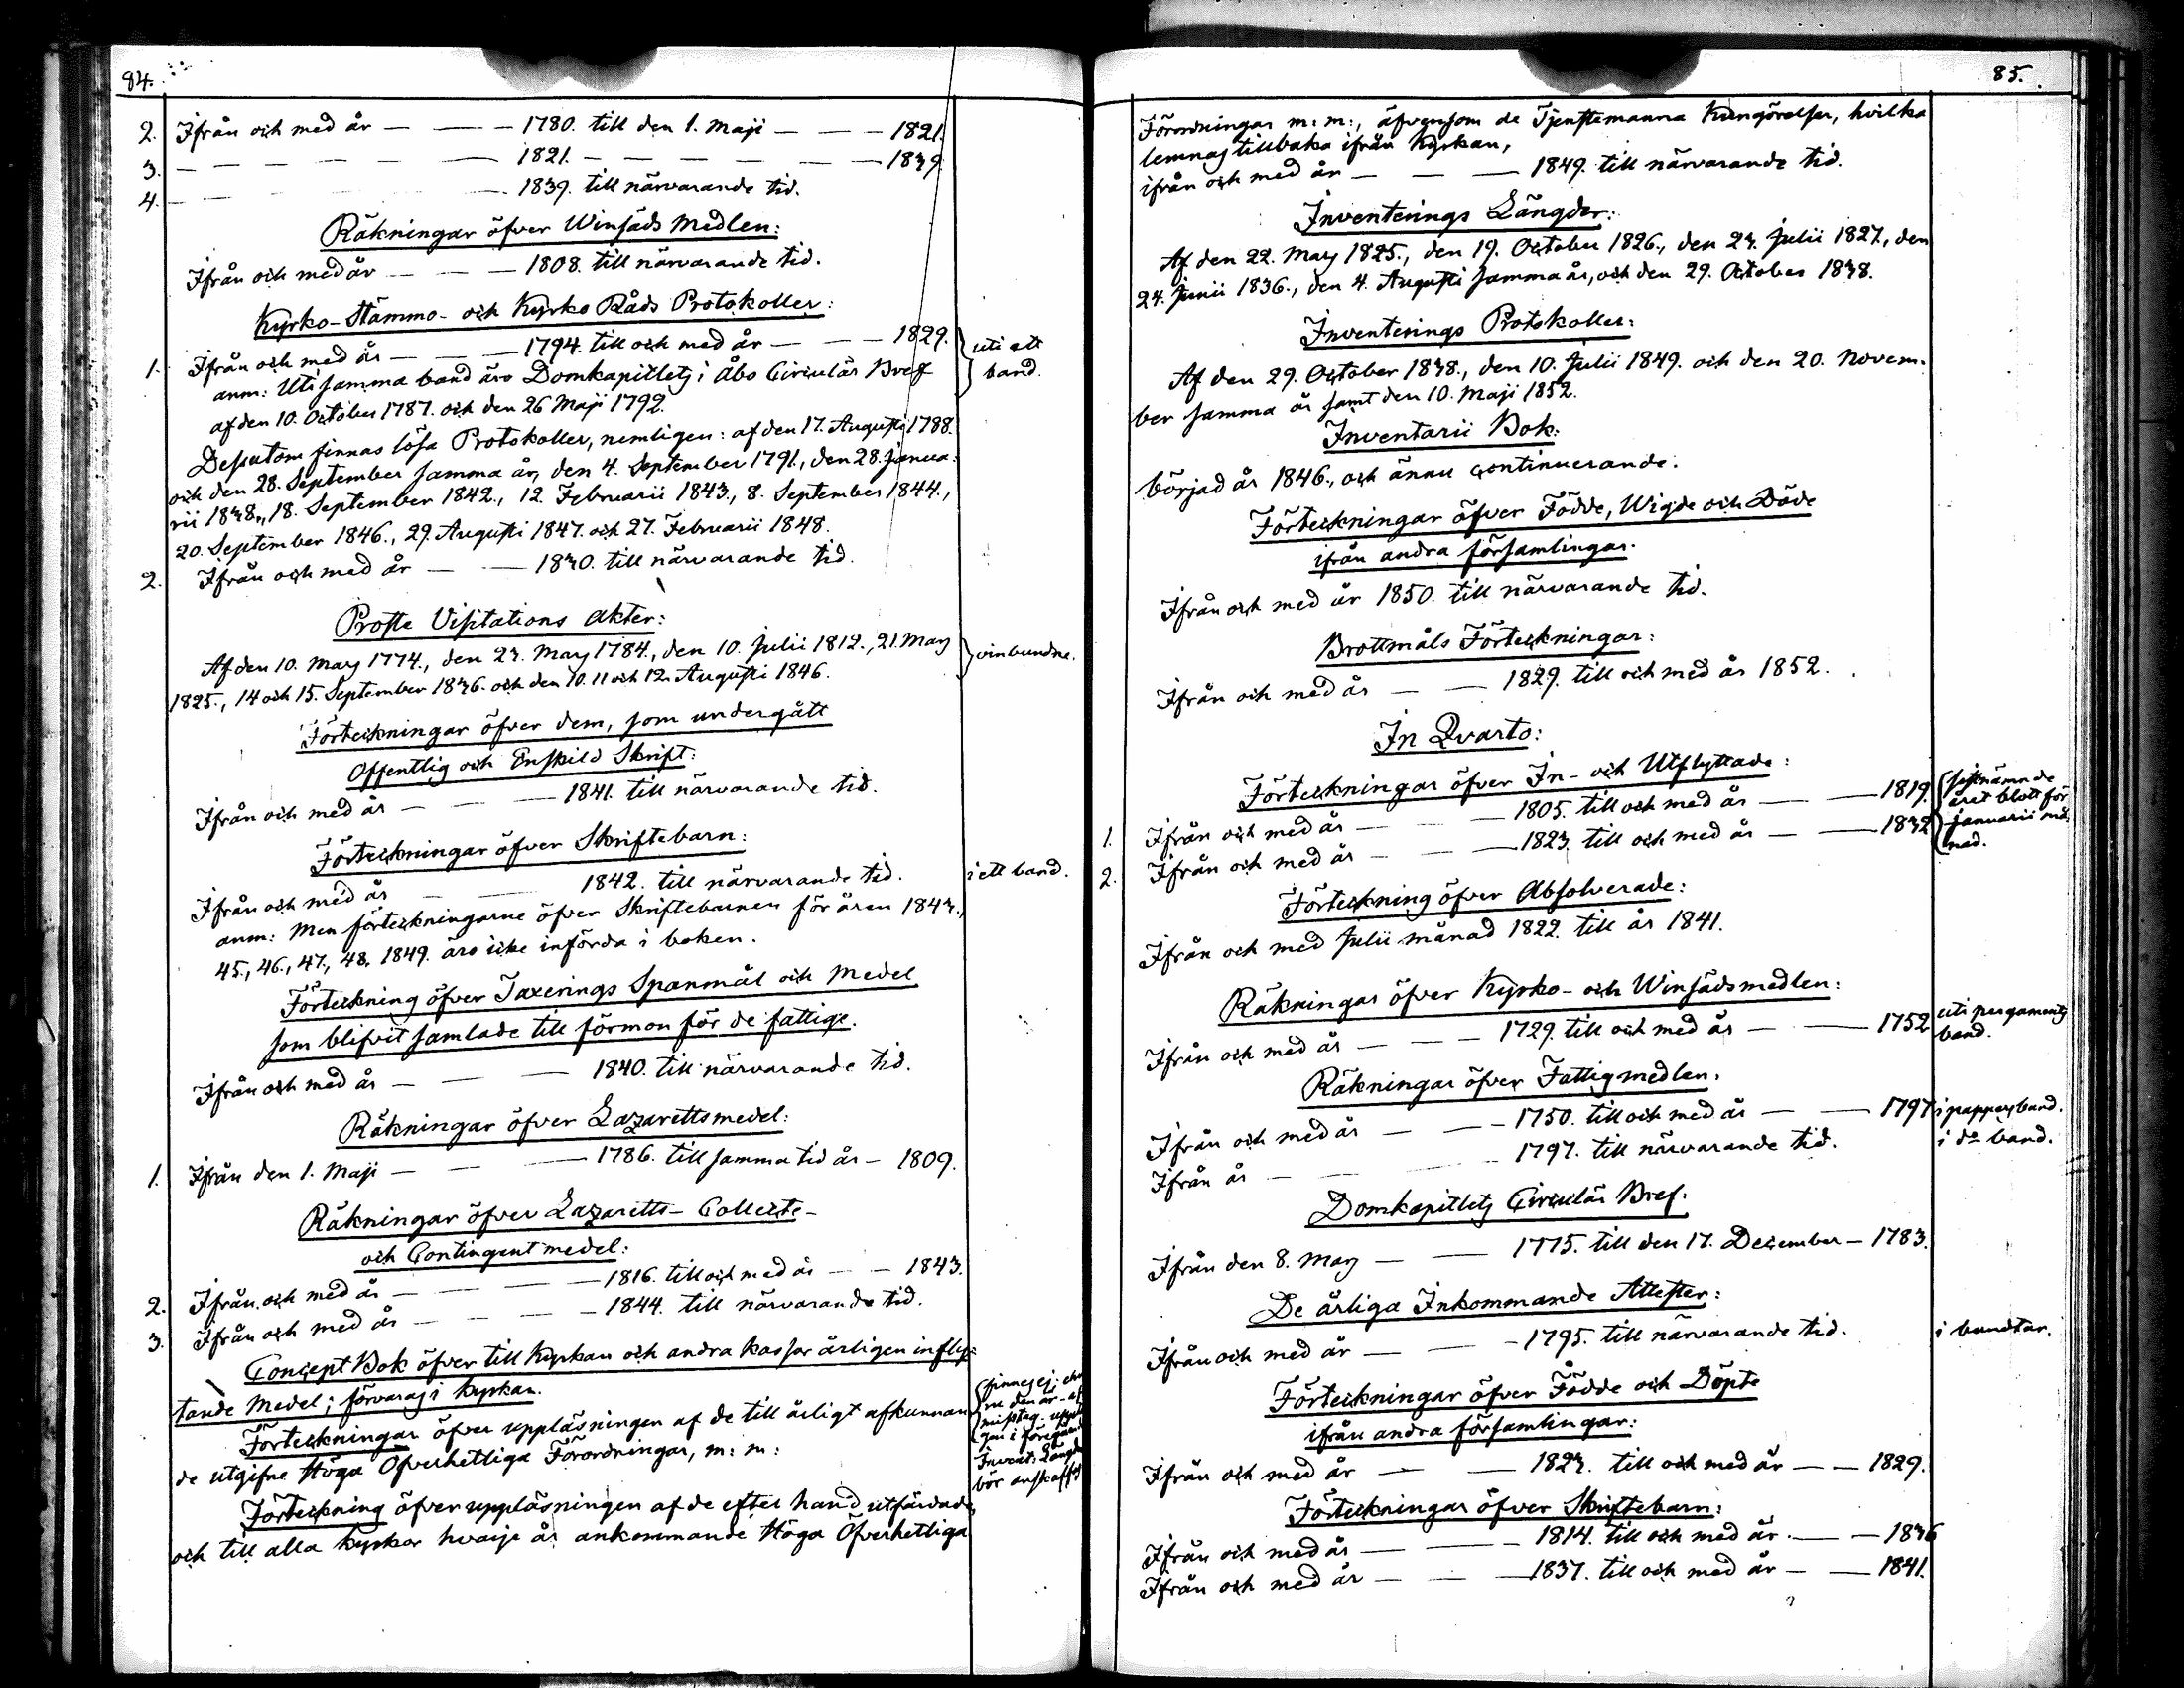 84.
2. Ifrån och med år — — — 1780. till den 1. Maji — — — 1821.
3. — — — — — — 1821. — — — — — — 1839.
4. — — — — 1839. till närvarande tid.
Räkningar öfver Winsäds Medlen:
Ifrån och med år — — — 1808. till närvarande tid.
Kyrko-Stämmo- och Kyrko Råds Protokoller:
1. Ifrån och med år — — — 1794. till och med år — — — 1829. uti ett
anm: Uti samma band äro Domkapitlets i Åbo Circulär Bref band.
af den 10. October 1787. och den 26 Maji 1792.
Dessutom finnas lösa Protokoller, nemligen: af den 17. Augusti 1788.
och den 28. September samma år, den 4. September 1791., den 28. Janua-
rii 1838., 18. September 1842., 12. Februarii 1843., 8. September 1844.,
20. September 1846., 29. Augusti 1847. och 27. Februarii 1848.
2. Ifrån och med år — — 1830. till närvarande tid.
Proste Visitations Akter:
Af den 10. Mars 1774., den 23. Mars 1784., den 10. Julii 1812., 21. Mars oinbundne.
1825., 14 och 15. September 1836. och den 10. 11 och 12. Augusti 1846.
Förteckningar öfver dem, som undergått
Offentlig och Enskild Skrift:
Ifrån och med år — — — 1841. till närvarande tid.
Förteckningar öfver Skriftebarn:
Ifrån och med år — — 1842. till närvarande tid. i ett band.
anm: Men förteckningarne öfver Skriftebarnen för åren 1843.,
45., 46., 47., 48. 1849. äro icke införda i boken.
Förteckning öfver Taxerings Spanmål och Medel
som blifvit samlade till förmon för de fattige.
Ifrån och med år — — — 1840. till närvarande tid.
Räkningar öfver Lazarettsmedel:
1. Ifrån den 1. Maji — — — 1786. till samma tid år — 1809.
Räkningar öfver Lazaretts- Collecte-
och Contingent medel:
2. Ifrån och med år — — — 1816. till och med år — — 1843.
3. Ifrån och med år — — — 1844. till närvarande tid.
Concept Bok öfver till Kyrkan och andra kassor årligen infly-
tande Medel; förvaras i Kyrkan.
finnes ej;
Förteckningar öfver uppläsningen af de till årligt afkunnan-
de utgifne Höga Öfverhetliga Förordningar, m: m:
Invent: Längd
bör anskaffas
Förteckning öfver uppläsningen af de efter hand utfärdade
och till alla kyrkor hvarje år ankommande Höga Öfverhetliga
85.
Förordningar m: m:, äfvensom de Tjenstemanna Kungörelser, hvilka
lemnas tillbaka ifrån Kyrkan,
ifrån och med år — — — 1849. till närvarande tid.
Inventerings Längder:
Af den 22. Mars 1825., den 19. October 1826., den 23. Julii 1827., den
24. Junii 1836., den 4. Augusti samma år, och den 29. October 1838.
Inventerings Protokoller:
Af den 29. October 1838., den 10. Julii 1849. och den 20. Novem-
ber samma år samt den 10. Maji 1852.
Inventarii Bok:
börjad år 1846., och ännu continuerande.
Förteckningar öfver Födde, Wigde och Döde
ifrån andra församlingar.
Ifrån och med år 1850. till närvarande tid.
Brottmåls Förteckningar:
Ifrån och med år — — 1829. till och med år 1852.
In Qvarto:
Förteckningar öfver In- och Utflyttade:
1. Ifrån och med år — — 1805. till och med år — — 1819. sistnämnde
året blott för
2. Ifrån och med år — — 1823. till och med år — — 1832 Januarii må-
nad.
Förteckning öfver Absolverade:
Ifrån och med Julii månad 1822. till år 1841.
Räkningar öfver Kyrko- och Winsädsmedlen:
Ifrån och med år — — — 1729. till och med år — — 1752 uti pergaments
band.
Räkningar öfver Fattigmedlen.
Ifrån och med år — — — 1750. till och med år — — 1797 i pappersband.
Ifrån år — — — 1797. till närvarande tid. i d:o band.
Domkapitlets Circulär Bref.
Ifrån den 8. Mars — — 1775. till den 17. December — 1783.
De årliga Inkommande Attester:
Ifrån och med år — — — 1795. till närvarande tid. i bandtar.
Förteckningar öfver Födde och Döpte
ifrån andra församlingar:
Ifrån och med år — — 1823. till och med år — — 1829.
Förteckningar öfver Skriftebarn:
Ifrån och med år — — — 1814. till och med år — — 1836
Ifrån och med år — — — 1837. till och med år — — 1841.